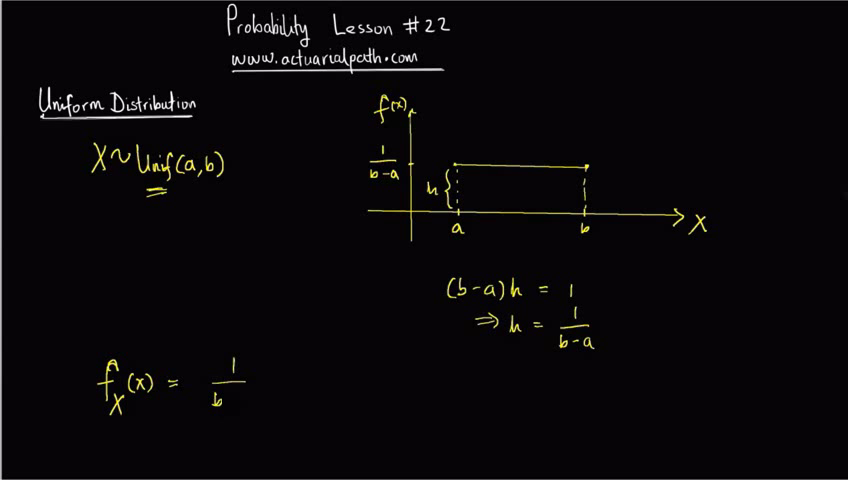 Probability Lesson #22
www.actuarialpath.com
Uniform Distribution
X ~ Unif(a,b)
f(x)
1/(b-a)
h {
a b
X
(b-a)h = 1
⇒ h = 1/(b-a)
f_X(x) = 1/b